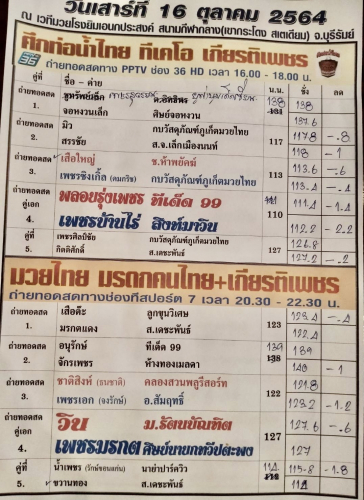 วันเสาร์ที่ 16 ตุลาคม 2564
ณ เวทีมวยโรงยิมเอนกประสงค์ สนามกีฬากลาง(เขากระโดง สเตเดียม) จ.บุรีรัมย์
ศึกท่อน้ำไทย ทีเคโอ เกียรติเพชร
ถ่ายทอดสด ทาง PPTV ช่อง 36 HD เวลา 16.00 - 18.00 น.
คู่ที่ ชื่อ - ค่าย น.น. ชั่ง ลด
ถ่ายทอดสด ชูทรัพย์เล็ก ต.อิทธิพร 138 138
1. จอหงวนเล็ก ศิษย์จอหงวน 137.6
ถ่ายทอดสด มิว กมวัสดุภัณฑ์ภูเก็ตมวยไทย 117 117.8 -.8
2. สรรชัย ส.จ.เล็กเมืองนนท์ 118 -1
ถ่ายทอดสด เสือใหญ่ ช.ห้าพยัคฆ์ 113 113.6 -.6
3. เพชรซิงเกิ้ล (ดมกริช) กมวัสดุภัณฑ์ภูเก็ตมวยไทย 113.4 -.4
ถ่ายทอดสด พลอยรุ่งเพชร ทีเด็ด 99 110 111.4 -1.4
คู่เอก
4. เพชรบ้านไร่ สิงห์มาวิน 112.2 -2.2
คู่ที่ เพชรศิลป์ชัย กมวัสดุภัณฑ์ภูเก็ตมวยไทย 127 126.8
5. กิตติศักดิ์ ส.เดชะพันธ์ 127.2 -.2
มวยไทย มรดกคนไทย+เกียรติเพชร
ถ่ายทอดสดทางช่องทีสปอร์ต 7 เวลา 20.30 - 22.30 น.
ถ่ายทอดสด เสือดำ ลูกขุนวิเศษ 123 123.4 -.4
1. มรกตแดง ส.เดชะพันธ์ 122.4
ถ่ายทอดสด อนุรักษ์ ทีเด็ด 99 139 139
2. จักรเพชร ห้างทองเมลดา 138 140 -1
ถ่ายทอดสด ชาติสิงห์ (ธนชาติ) คลองสวนพลูรีสอร์ท 122 121.8
3. เพชรเอก (จงรักษ์) อ.สัมฤทธิ์ 123.2 -1.2
ถ่ายทอดสด วิน ม.รัตนบัณฑิต 127 127.6 -.6
คู่เอก
4. เพชรมรกต ศิษย์นายกทวีปตะพง 127
คู่ที่ น้ำเพชร (รักษ์ขอนแก่น) นายำปาร์ควิว 114 115.8 -1.8
5. ขวานทอง ส.เดชะพันธ์ 114